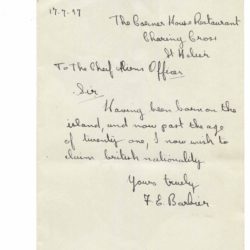 17.7.47
The Corner House Restaurant
Charing Cross
St Helier
To The Cheif Aliens Officer
Sir
Having been born on the
island, and now past the age
of twenty one, I now wish to
claim british nationality
Yours truely
F. E. Barbier